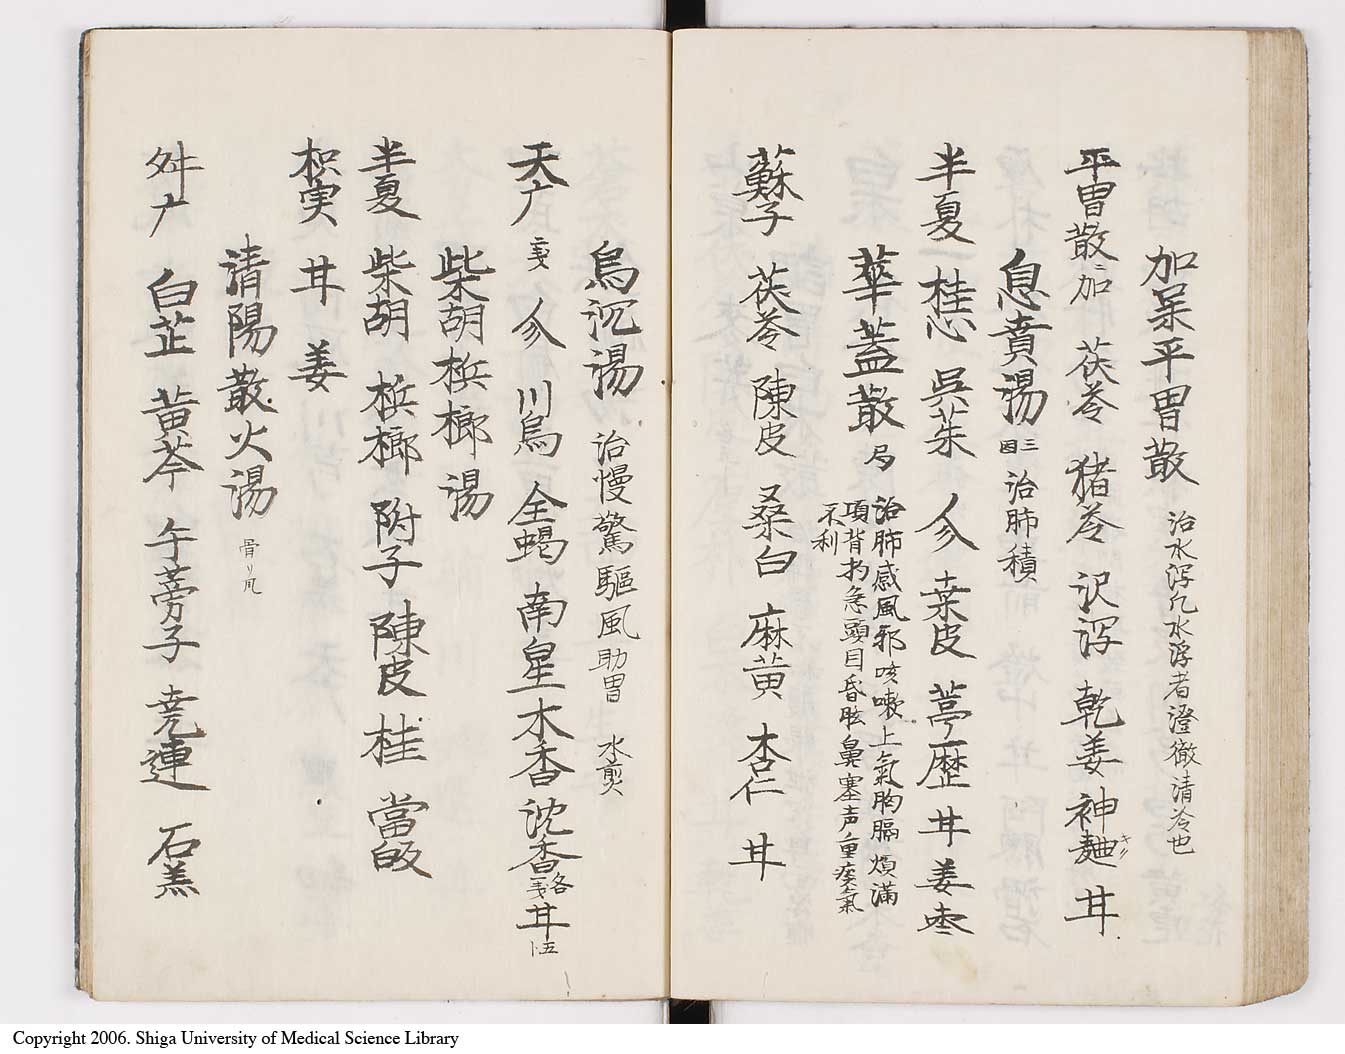 加呆平胃散 治水瀉凡水瀉者澄徹清冷也
平胃散ニ加 茯苓 猪苓 沢瀉 乾姜 神麯 甘
息賁湯 三因 治肺積
半夏 桂心 呉茱 人参 桑皮 葶歴 甘 姜 棗
華蓋散 局 治肺感風邪咳嗽上氣胸膈煩滿
項背拘急頭目昏眩鼻塞声重痰氣
不利
蘇子 茯苓 陳皮 桑白 麻黄 杏仁 甘
烏沉湯 治慢驚驅風助胃 水煎
天广 二戔 人参 川烏 全蝎 南星 木香 沈香 各一戔 甘 五卜
柴胡梹榔湯
半夏 柴胡 梹榔 附子 陳皮 桂 當皈
枳実 甘 姜
清陽散火湯
舛广 白芷 黄芩 午蒡子 連 石羔